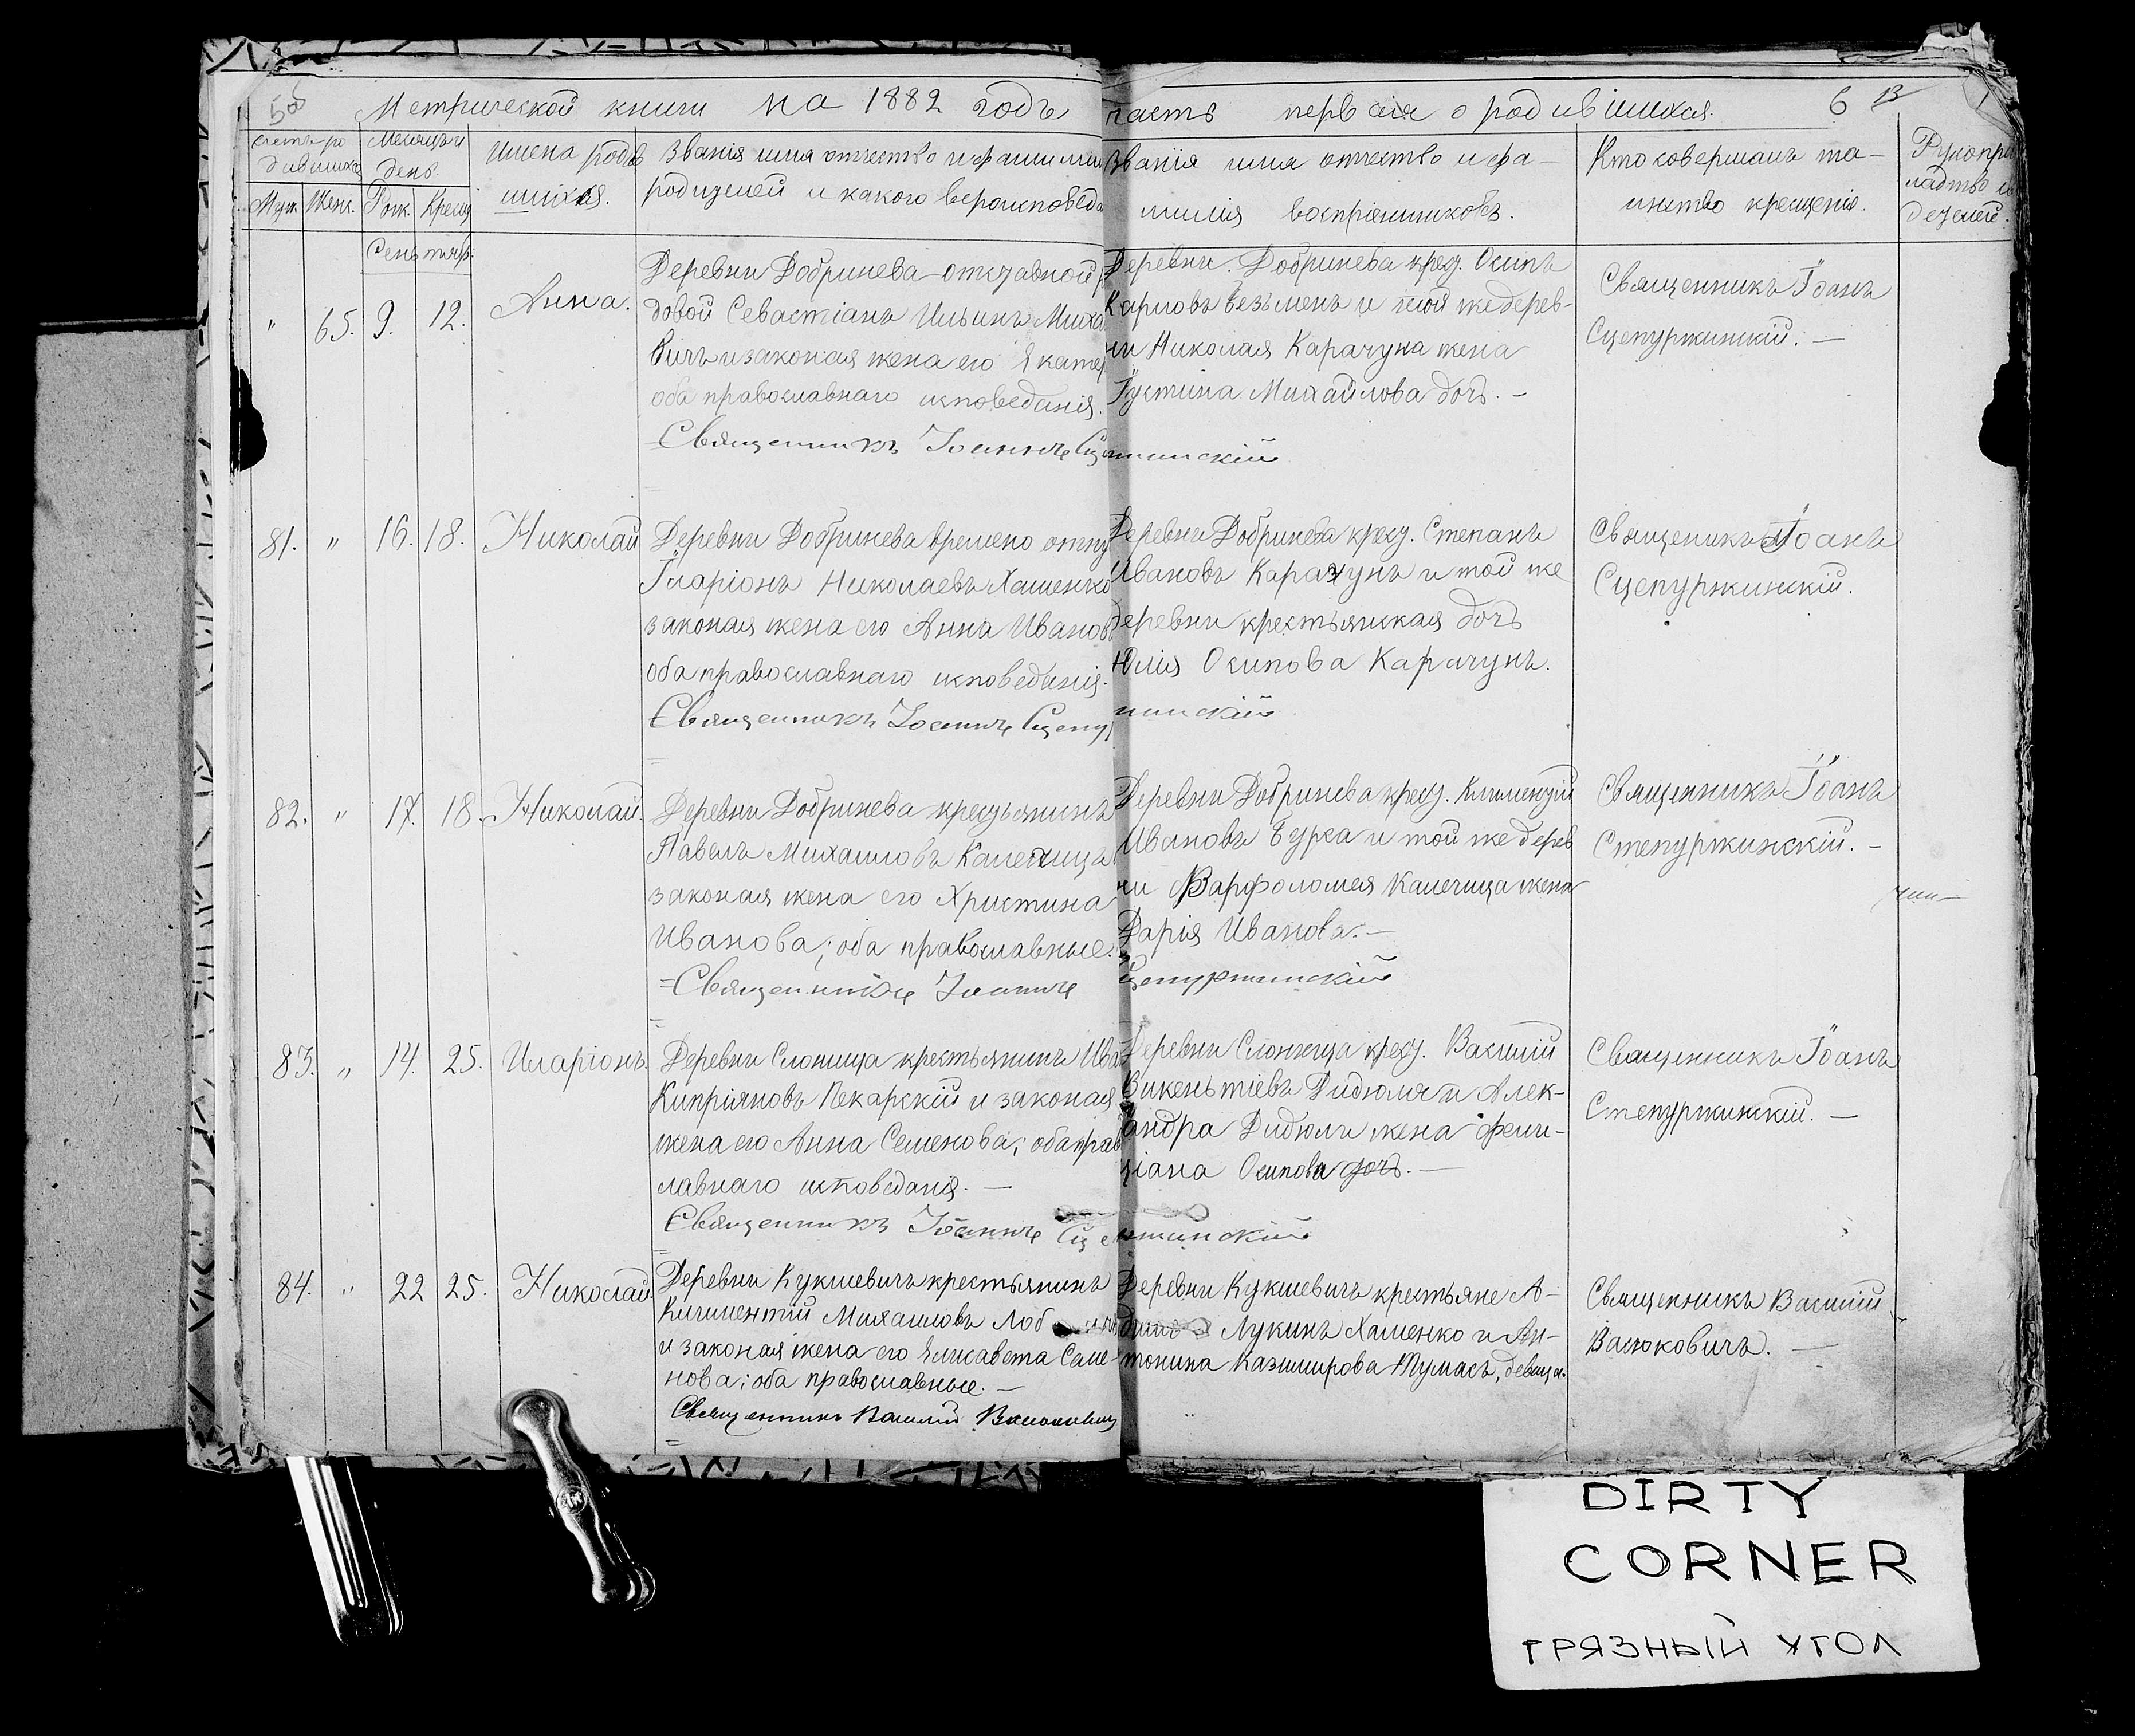 Метрической книги на 1882 годъ
часть первая о родившихся.
Счетъ ро
дившихся
Муж. Женс.
Месяцъ и
день.
Рож. Крещ
Имена родив
шихся.
Званія имя отчество и фамилия
родителей и какого вероисповеда
Званія имя отчество и фа-
милія воспріемниковъ.
Кто совершалъ та-
инство крещенія.
Рукопри
кладство
детелей.
Сентяб.
" 65. 9. 12.
Анна.
Деревни Добринева отставной
довой Севастіанъ Ильинъ Миха
вичъ и законая жена его Екате
оба православнаго исповеданія.
Священникъ Іоаннъ
Деревни Добринева крест. Осипъ
Карповъ Безьменъ и той же дерев-
ни Николая Карачуна жена
Іустина Михайлова дочь. -
Священникъ Іоанъ
Сцепуржинскій. -
81. " 16. 18.
Николай
Деревни Добринева времено отпу
Іларіонъ Николаевъ Хаменко
законая жена его Анна Иванов
оба православнаго исповеданія.
Священникъ Іоаннъ Сцепу
Деревни Добринева крест. Степанъ
Ивановъ Карачунъ и той же
деревни крестьянская дочь
Юлія Осипова Карачунъ.
Священикъ Іоанъ
Сцепуржинскій.
82. " 17. 18.
Николай.
Деревни Добринева крестьянинъ
Павелъ Михаиловъ Калечица
законая жена его Христина
Иванова; оба православные.
Священникъ Іоаннъ
Деревни Добринева крест. Климентій
Ивановъ Бурка и той же дерев
ни Варфоломея Калечица жена
Дарія Иванова. -
Сцепуржинскій
Священникъ Іоанъ
Степуржинскій. -
83. " 14. 25.
Иларіонъ.
Деревни Слонища крестьянинъ Ива
Кипріяновъ Пекарскій и законая
жена его Анна Семенова; оба прав
лавнаго исповеданія. -
Священникъ Іоаннъ
Деревни Слонища крест. Василій
Викентіевъ Дидюля и Алек-
андра Дидюли жена Фели-
ціана Осипова дочь. -
Священникъ Іоанъ
Степуржинскій. -
84. " 22 25.
Николай
Деревни Кукшевичъ крестьянинъ
Климентій Михаиловъ Лоб
и законая жена его Елисавета Семе-
нова; оба православные. -
Священникъ Василій Васюковичъ
Деревни Кукшевичъ крестьяне А-
Лукинъ Хаменко и Ан-
тонина Казимирова Тумасъ, девица.
Священникъ Василій
Васюковичъ. -
DIRTY
CORNER
ГРЯЗНЫЙ УГОЛ